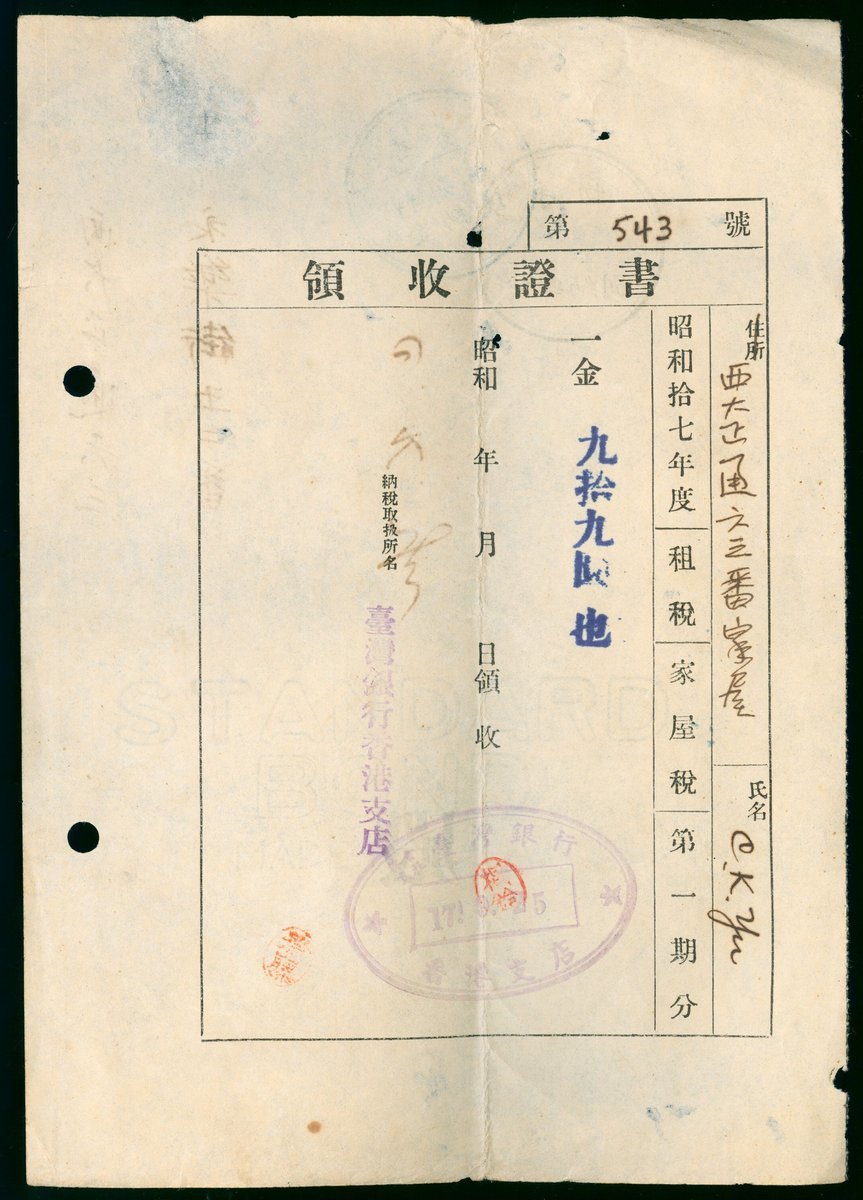 第 543 號
領收證書
住所 西大正通六三番家屋
氏名 C.K. Yu
昭和拾七年度 租稅 家屋稅 第一期分
一金 九拾九圓也
昭和 年 月 日領收
納稅取扱所名
臺灣銀行香港支店
臺灣銀行
17.
香港支店